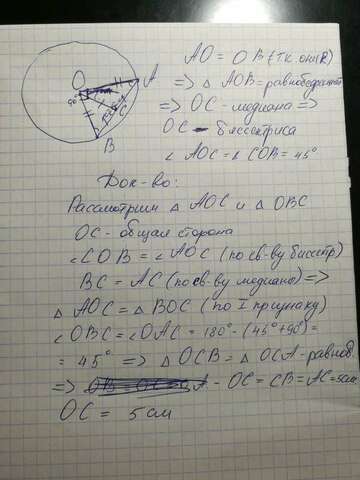 O
A
90°
C
B
AO = OB (т.к. они R)
=> △ AOB = равнобедрен
=> OC - медиана =>
OC - биссектриса
∠ AOC = ∠ COB = 45°
Док-во:
Рассмотрим △ AOC и △ OBC
OC - общая сторона
∠COB = ∠AOC (по св-ву биссктр)
BC = AC (по св-ву медианы) =>
△ AOC = △ BOC (по I признаку)
∠OBC = ∠OAC = 180° - (45°+90°) =
= 45° => △ OCB = △ OCA - равноб.
=> - OC = CB = AC = 5см
OC = 5 см